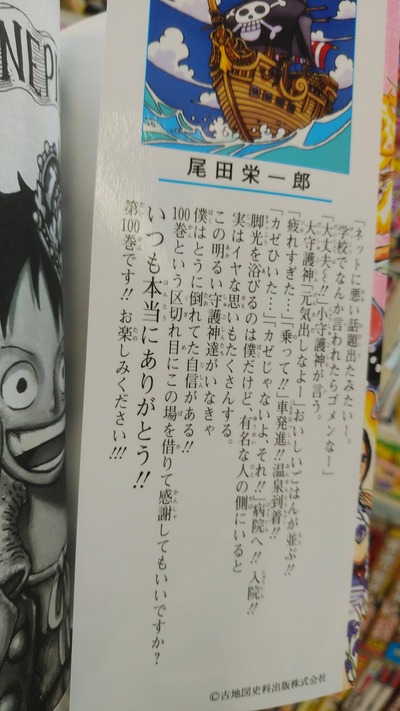 ONE PI
尾田栄一郎
「ネットに悪い話題出たみたいー。
学校でなんか言われたらゴメンなー」
「大丈夫〜!!」小守護神が言う。
大守護神「元気出しなよー」おいしいごはんが並ぶ!!
「疲れすぎた…」「乗って!!」車発進!!温泉到着!!
「カゼひいた…」「カゼじゃないよ、それ!!」病院へ!!入院!!
脚光を浴びるのは僕だけど、有名な人の側にいると
実はイヤな思いもたくさんする。
この明るい守護神達がいなきゃ
僕はとうに倒れてた自信がある!!
100巻という区切れ目にこの場を借りて感謝してもいいですか?
いつも本当にありがとう!!
第100巻です!!お楽しみください!!!
©古地図史料出版株式会社